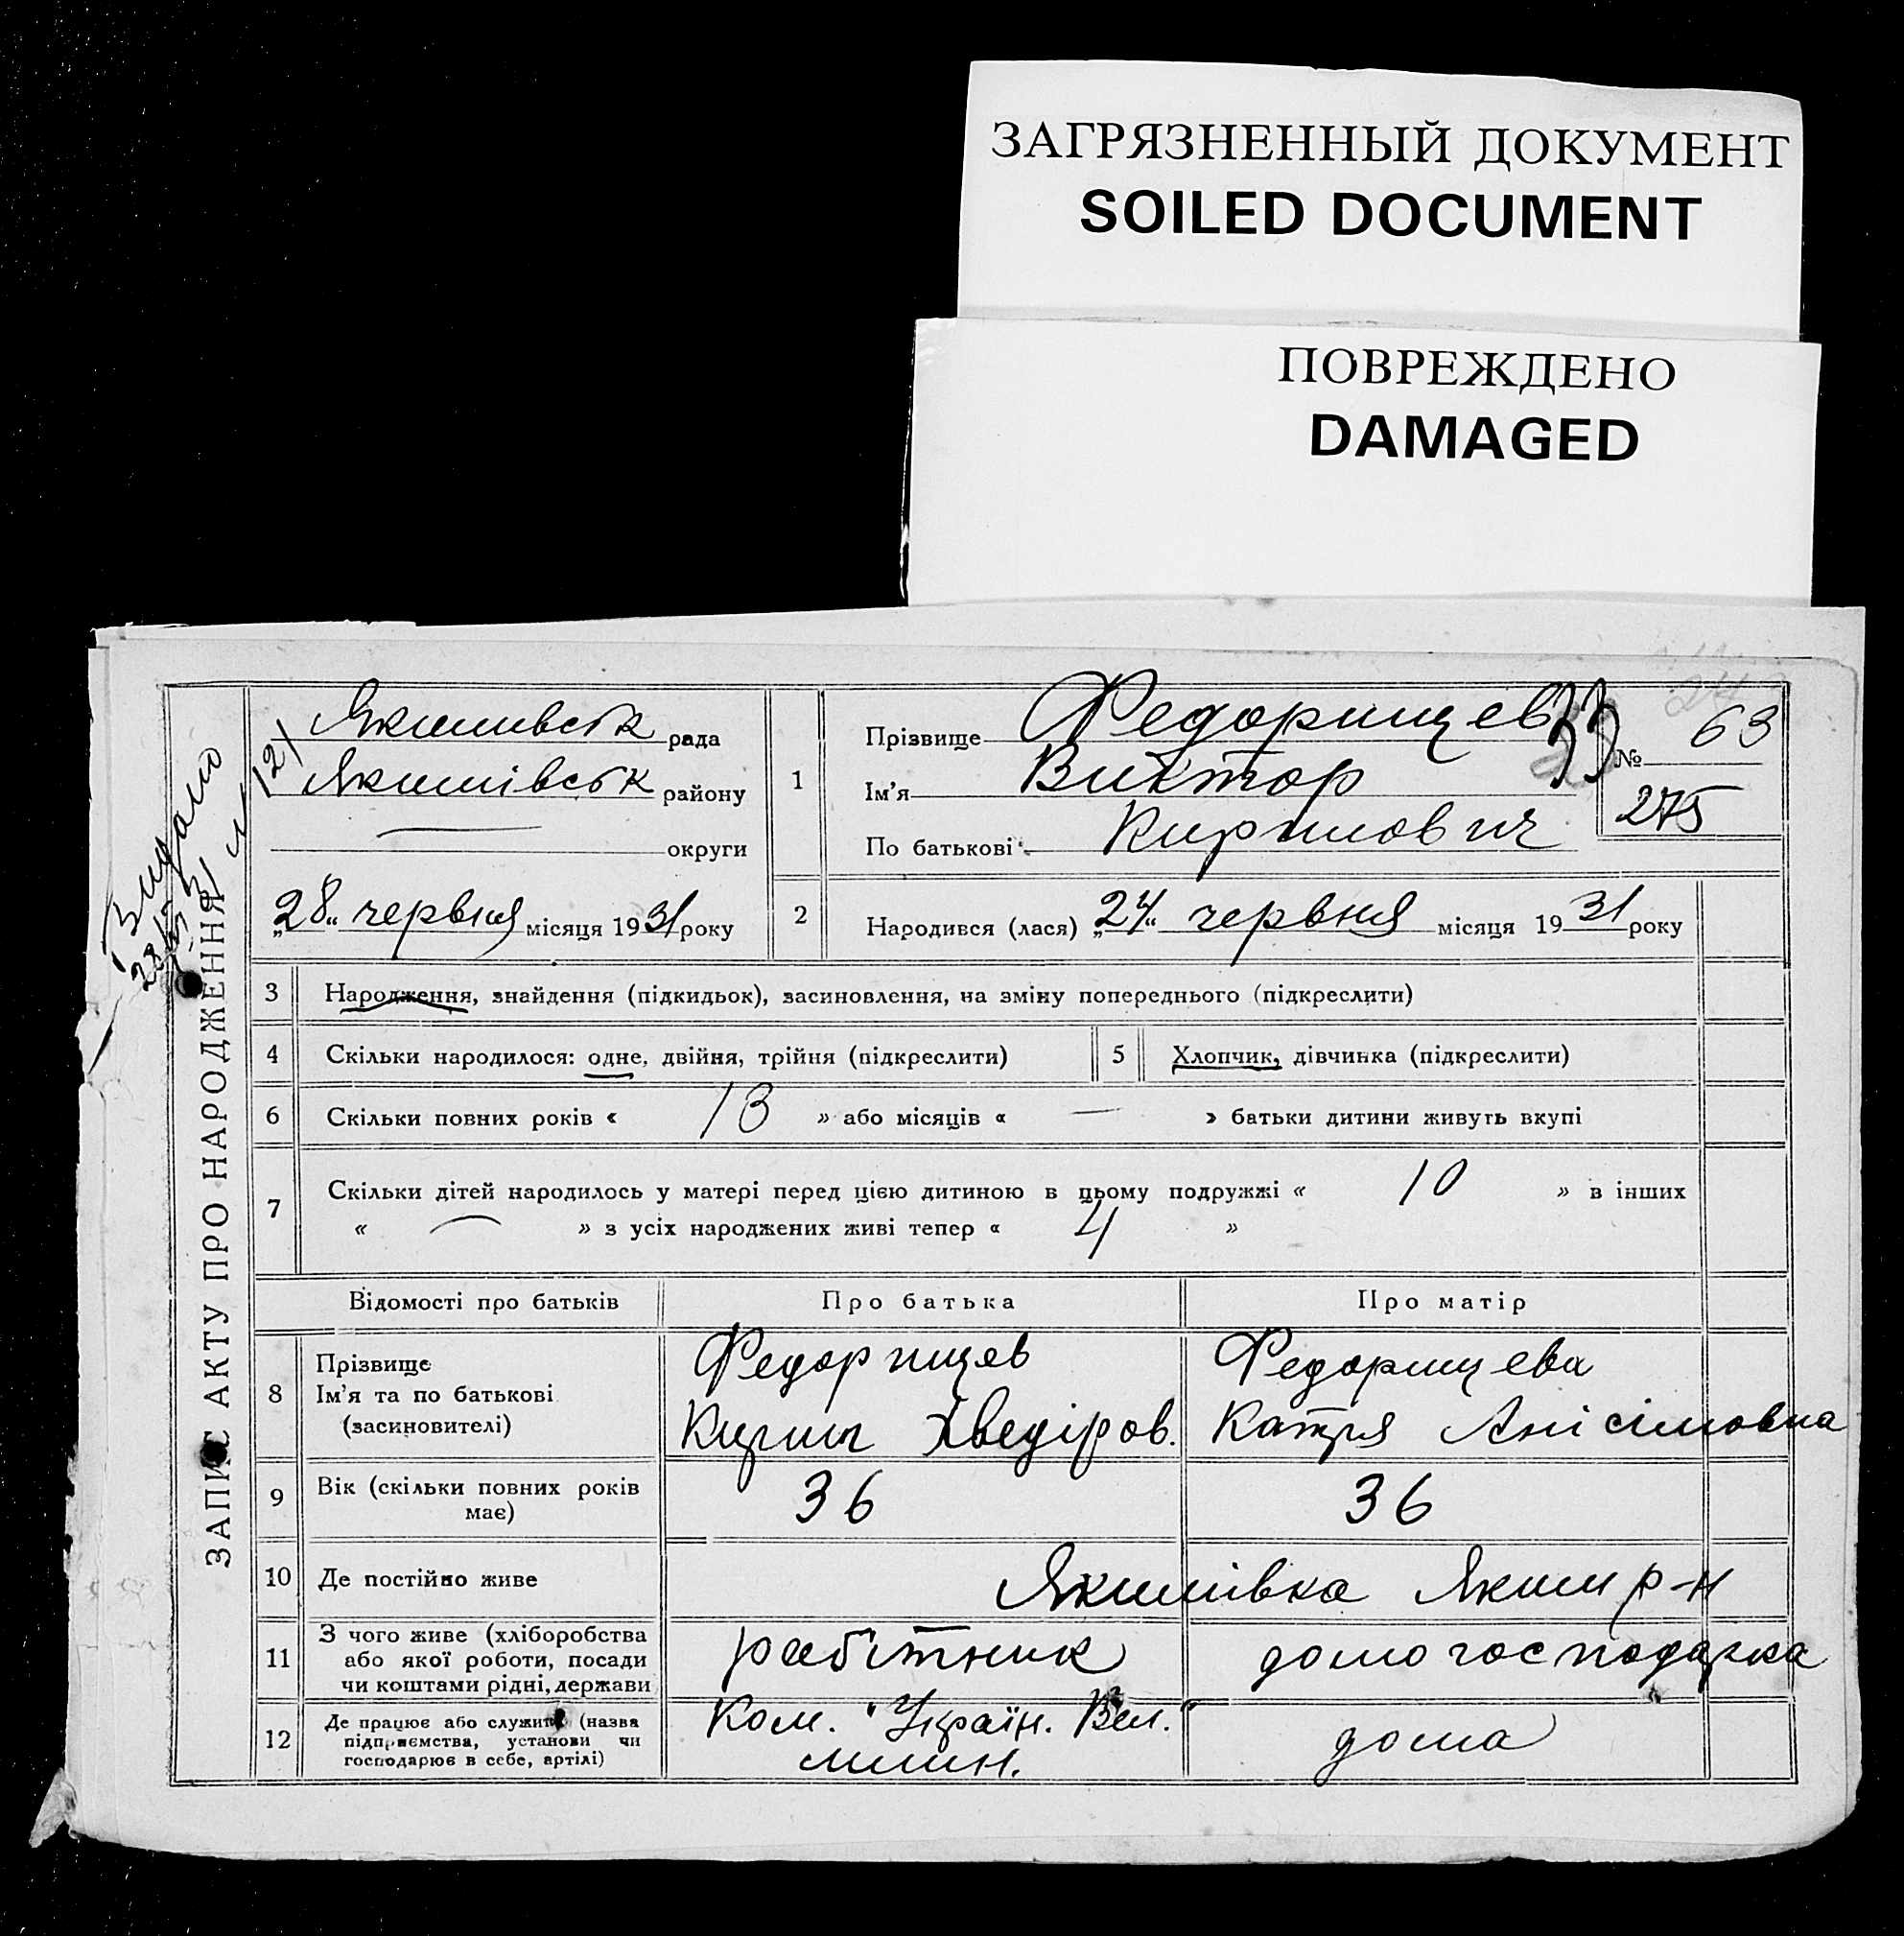 ЗАГРЯЗНЕННЫЙ ДОКУМЕНТ
SOILED DOCUMENT
ПОВРЕЖДЕНО
DAMAGED
ЗАПИС АКТУ ПРО НАРОДЖЕННЯ
Видано
Якимівськ рада
Якимівськ району
— округи
„28“ червня місяця 1931 року
1
Прізвище Федорищев
Ім’я Виктор
По батькові Кирилович
33
№ 63
275
2
Народився (лася) „24“ червня місяця 1931 року
3 Народження, знайдення (підкидьок), засиновлення, на зміну попереднього (підкреслити)
4 Скільки народилося: одне, двійня, трійня (підкреслити)
5 Хлопчик, дівчинка (підкреслити)
6 Скільки повних років « 13 » або місяців « — » батьки дитини живуть вкупі
7 Скільки дітей народилось у матері перед цією дитиною в цьому подружжі « 10 » в інших
« — » з усіх народжених живі тепер « 4 »
Відомості про батьків Про батька Про матір
8
Прізвище
Ім’я та по батькові
(засиновителі)
Федорищев
Кирил Хведіров.
Федорищева
Катря Анісімовна
9
Вік (скільки повних років
має)
36
36
10 Де постійно живе
Якимівка Яким р-н
11
З чого живе (хліборобства
або якої роботи, посади
чи коштами рідні, держави
робітник
домогосподарка
12
Де працює або служить (назва
підприємства, установи чи
господарює в себе, артілі)
Ком. "Україн. Вел."
млин.
дома